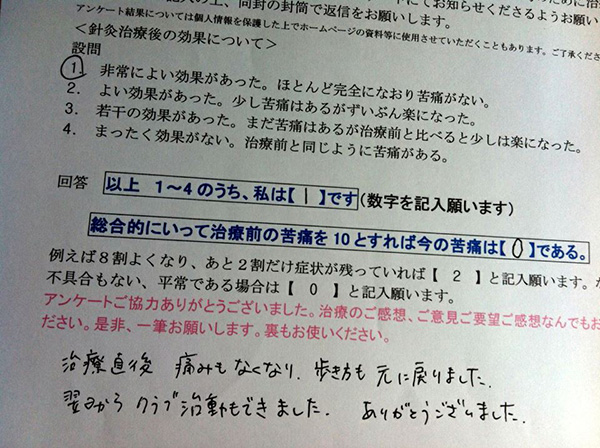 の上、同封の封筒で返信をお願いします。
にてお知らせくださるようお願い
アンケート結果については個人情報を保護した上でホームページの資料等に使用させていただくこともあります。ご了承くださ
＜針灸治療後の効果について＞
設問
1. 非常によい効果があった。ほとんど完全になおり苦痛がない。
2. よい効果があった。少し苦痛はあるがずいぶん楽になった。
3. 若干の効果があった。まだ苦痛はあるが治療前と比べると少しは楽になった。
4. まったく効果がない。治療前と同じように苦痛がある。
回答 以上 1～4のうち、私は【 1 】です(数字を記入願います)
総合的にいって治療前の苦痛を10とすれば今の苦痛は【 0 】である。
例えば8割よくなり、あと2割だけ症状が残っていれば【 2 】と記入願います。
不具合もない、平常である場合は【 0 】と記入願います。
アンケートご協力ありがとうございました。治療のご感想、ご意見ご要望ご感想なんでもお
ださい。是非、一筆お願いします。裏もお使いください。
治療直後 痛みもなくなり、歩き方も元に戻りました。
翌日から クラブ活動もできました。 ありがとうございました。